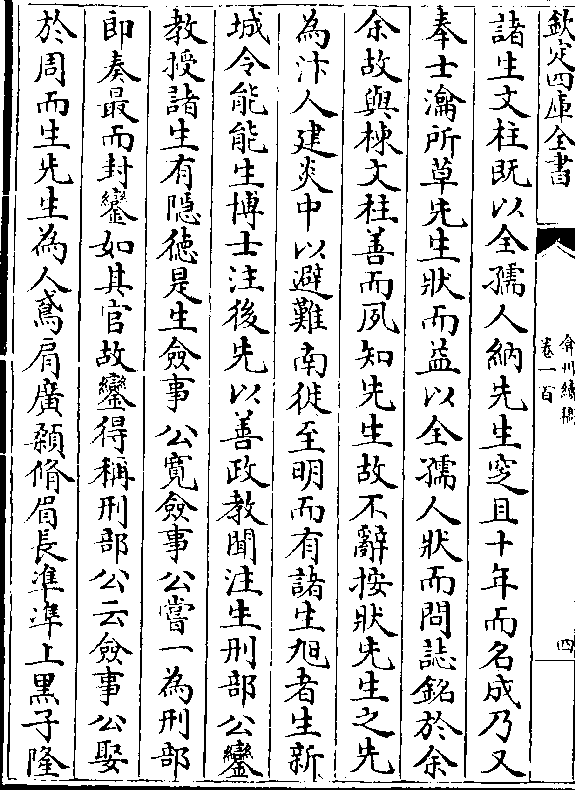 欽定四庫全書
弇州續稿
卷一百
四
諸生文柱既以全孺人納先生窆且十年而名成乃又
奉士瀹所草先生狀而益以全孺人狀而問誌銘於余
余故與棟文柱善而夙知先生故不辭按狀先生之先
為汴人建炎中以避難南徙至明而有諸生旭者生新
城令能能生博士注後先以善政教聞注生刑部公鑾
教授諸生有隠徳是生僉事公寛僉事公嘗一為刑部
郎奏最而封鑾如其官故鑾得稱刑部公云僉事公娶
於周而生先生為人鳶肩廣顙脩眉長準準上黒子隆